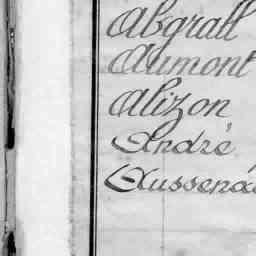 Abgrall
Aumont
Alizon
André
Aussenac